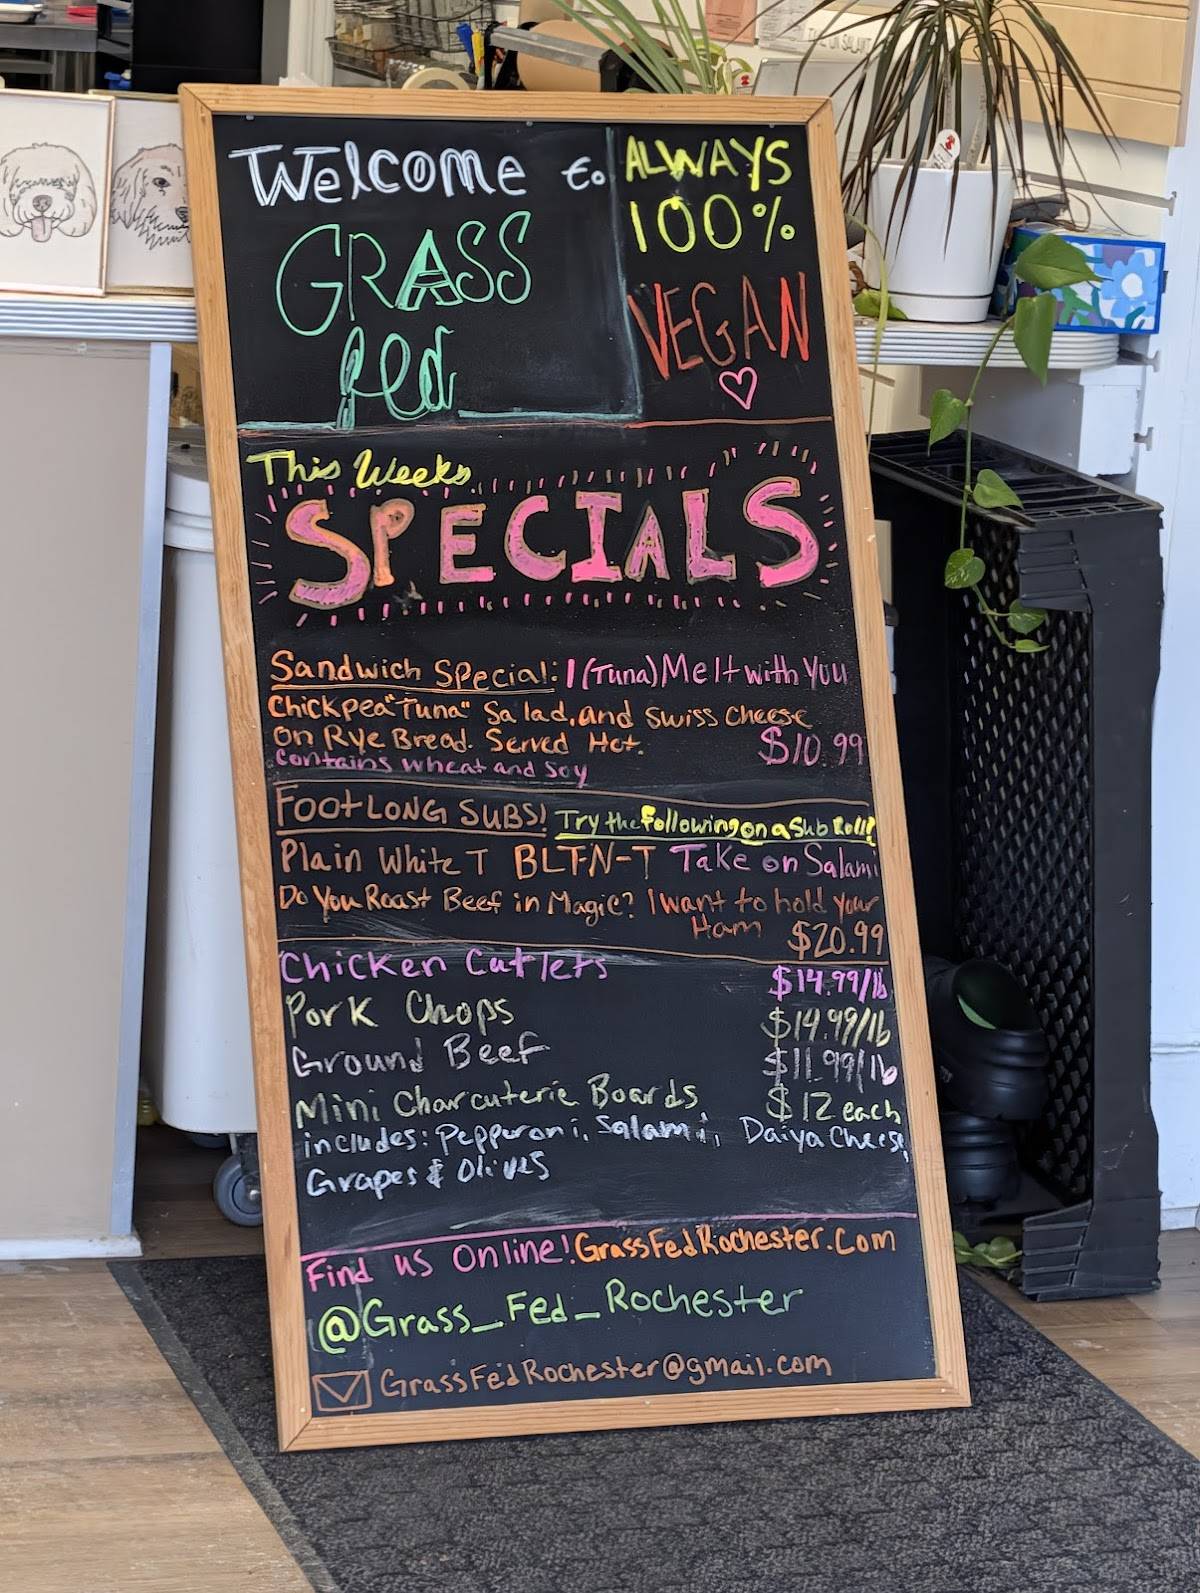 Welcome to
GRASS
fed
ALWAYS
100%
VEGAN
This Weeks
SPECIALS
Sandwich Special: I (Tuna) Melt with You
Chickpea "Tuna" Salad, and Swiss Cheese
on Rye Bread. Served Hot. $10.99
Contains wheat and soy
FOOTLONG SUBS! Try the following on a Sub Roll!
Plain White T BLT-N-T Take on Salami
Do You Roast Beef in Magic? I want to hold your
Ham $20.99
Chicken Cutlets $14.99/lb
Pork Chops $14.99/lb
Ground Beef $11.99/lb
Mini Charcuterie Boards $12 each
includes: Pepperoni, Salami, Daiya Cheese,
Grapes & Olives
Find us Online! GrassFedRochester.Com
@Grass_Fed_Rochester
GrassFedRochester@gmail.com